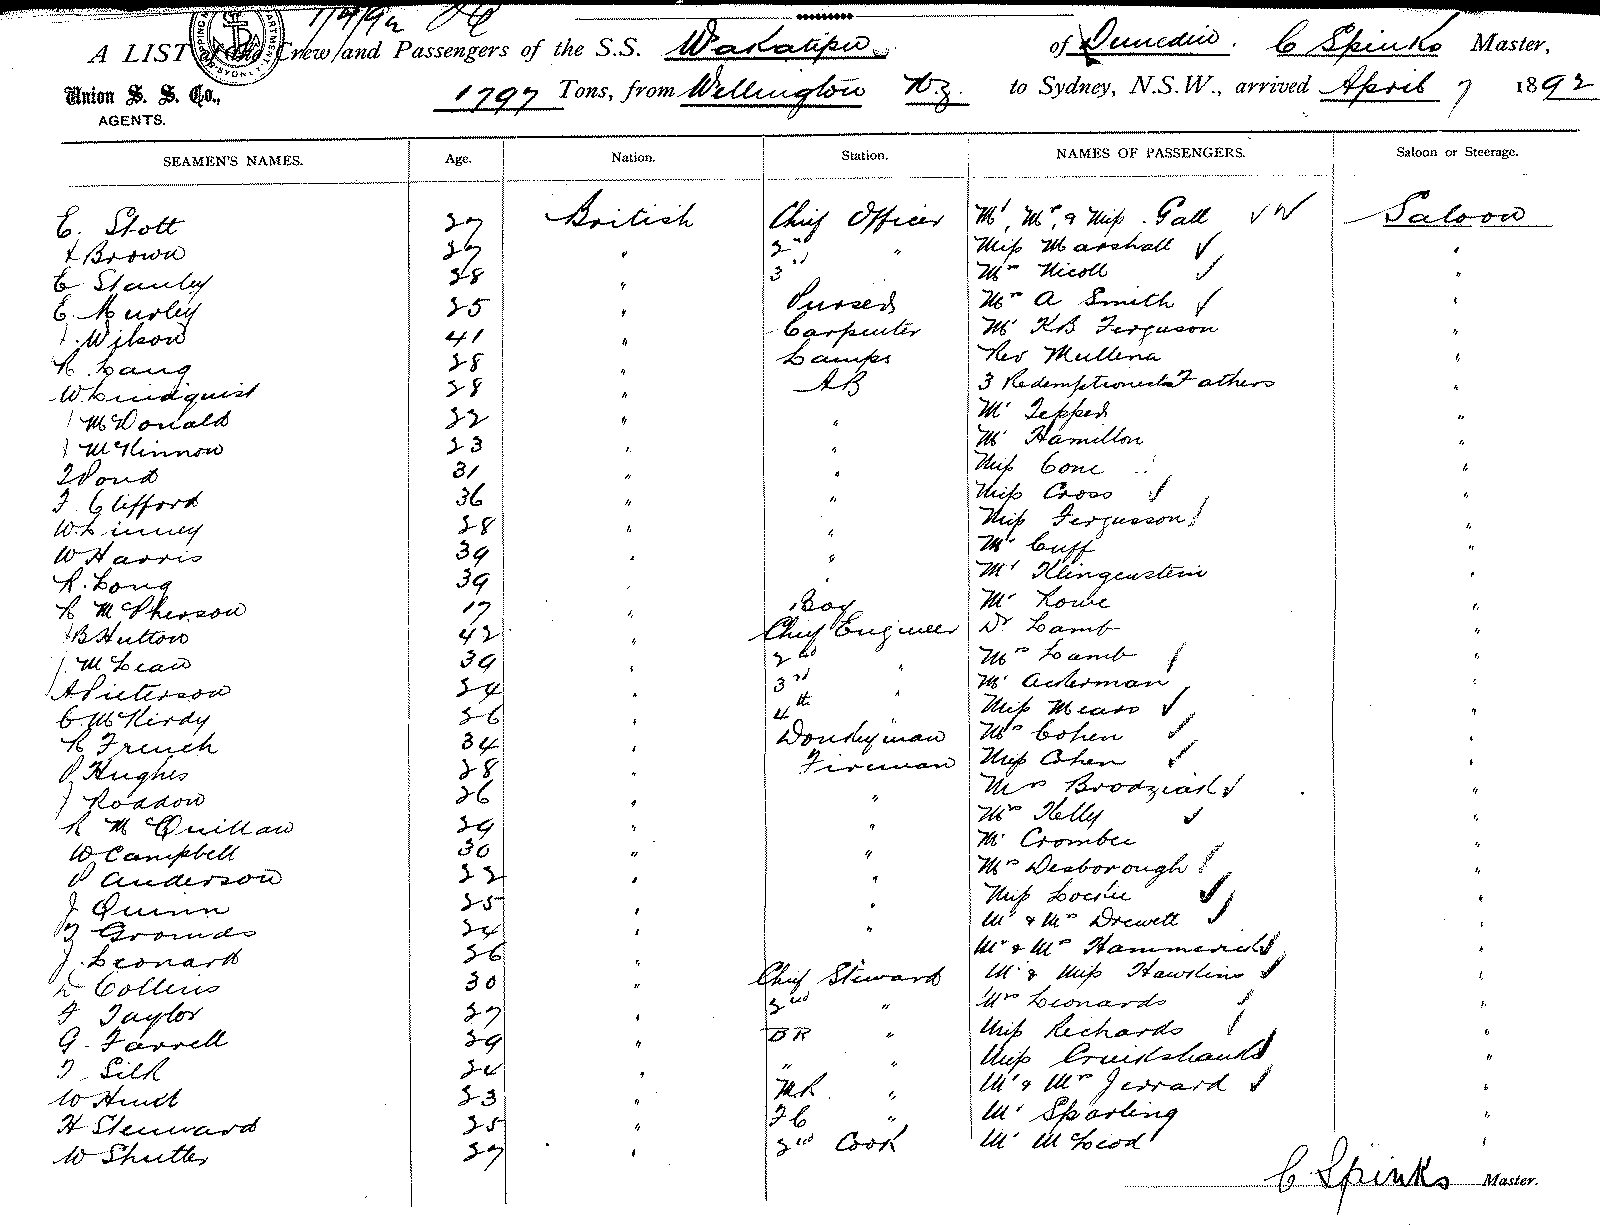 1/4/92
A LIST of the Crew and Passengers of the S.S. Wakatipu of Dunedin. C Spinks Master,
Union S. S. Co., AGENTS. 1797 Tons, from Wellington NZ. to Sydney, N.S.W., arrived April 7 1892
SEAMEN'S NAMES. Age. Nation. Station. NAMES OF PASSENGERS. Saloon or Steerage.
E. Stott 27 British Chief Officer Mr, Mrs, & Miss Gall Saloon
Brown 27 " 2nd " Miss Marshall "
E Stanley 28 " 3rd Mrs Nicoll "
E. Murley 25 " Purser Mrs A Smith "
J. Wilson 41 " Carpenter Mr KB Ferguson "
R. Lang 28 " Lamps Rev Mullena "
W Lindquist 28 " AB 3 Redemptionists Fathers "
J McDonald 22 " " Mr Tepper "
J McKinnon 23 " " Mr Hamilton "
T Pond 31 " " Miss Cone "
F. Clifford 36 " " Miss Cross "
W. Linney 28 " " Miss Fergusson "
W Harris 39 " " Mr Cuff "
R. Long 39 " " Mr Klingenstein "
R McPherson 17 " Boy Mr Lowe "
J B Hutton 42 " Chief Engineer Dr Lamb "
J. McLean 39 " 2nd " Mrs Lamb "
A Pieterson 24 " 3rd " Mr Ackerman "
C. McKirdy 26 " 4th Miss Mears "
R French 34 " Donkeyman Mrs Cohen "
P Hughes 28 " Fireman Miss Cohen "
J Roddon 26 " " Mrs Brodziak "
R McQuillan 29 " " Mrs Kelly "
W Campbell 30 " " Mr Crombie "
P Anderson 22 " " Mrs Desborough "
J Quinn 25 " " Miss Lockie "
T Grounds 24 " " Mr & Mrs Drewett "
J. Leonard 26 " Mr & Mrs Hammerich "
D Collins 30 " Chief Steward Mr & Miss Hawkins "
F Taylor 27 " 2nd " Mrs Leonards "
G. Farrell 29 " BR " Miss Richards "
T Silk 24 " " " Miss Cruickshank "
W Hind 23 " MR " Mr & Mrs Jerrard "
H Stenward 25 " FC " Mr Sparling "
W Shutter 27 " 2nd Cook Mr McLeod "
C Spinks Master.